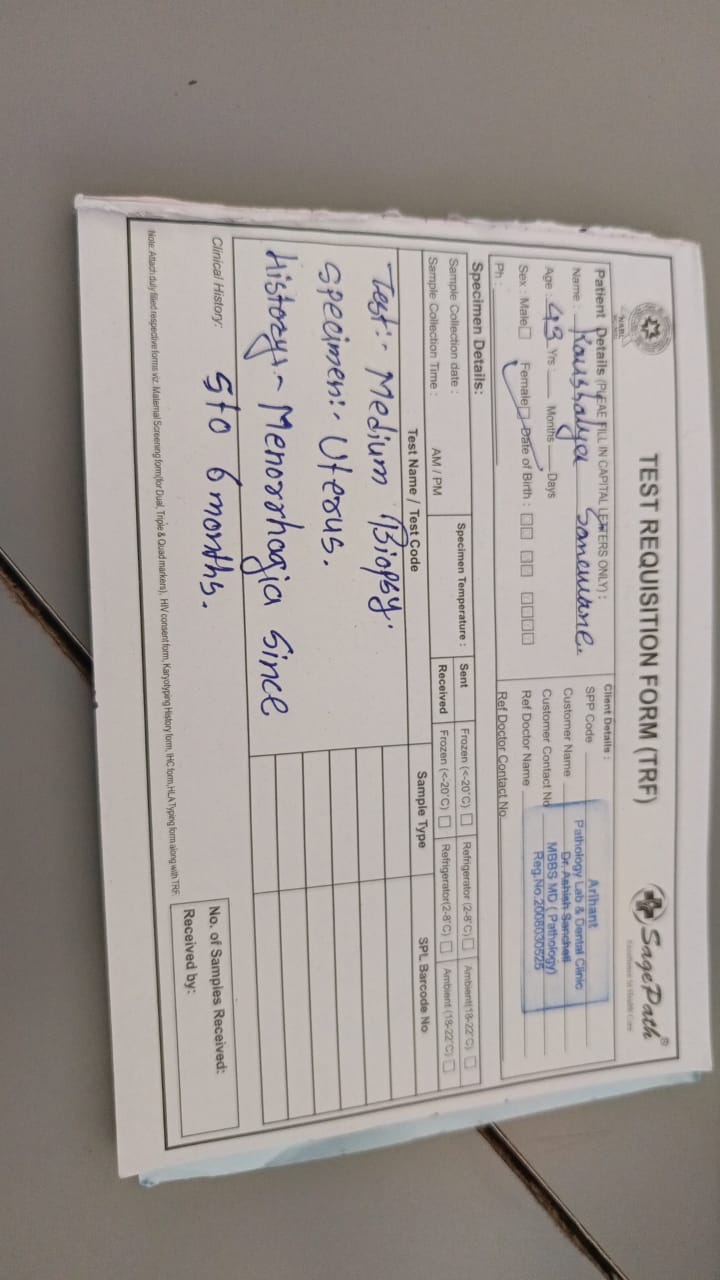 TEST REQUISITION FORM (TRF)
SagePath®
Patient Details (PLEAE FILL IN CAPITAL LETTERS ONLY) :
Name : Kaushalya Sonewane.
Age : 43 Yrs : Months Days
Sex : Male Female Date of Birth :
Ph :
Client Details :
SPP Code
Customer Name
Customer Contact No
Ref Doctor Name
Ref Doctor Contact No.
Arihant
Pathology Lab & Dental Clinic
Dr. Ashish Sancheti
MBBS MD ( Pathology)
Reg.No.2008030525
Specimen Details:
Sample Collection date :
Sample Collection Time : AM / PM
Specimen Temperature : Sent Frozen (<-20°C) Refrigerator (2-8°C) Ambient(18-22°C)
Received Frozen (<-20°C) Refrigerator(2-8°C) Ambient (18-22°C)
Test Name / Test Code Sample Type SPL Barcode No
Test:- Medium Biopsy.
Specimen:- Uterus.
History:- Menorrhagia since
5 to 6 months.
Clinical History:
No. of Samples Received:
Received by:
Note: Attach duly filled respective forms viz. Maternal Screening form(for Dual, Triple & Quad markers), HIV consent form, Karyotyping History form, IHC form, HLA Typing form along with TRF